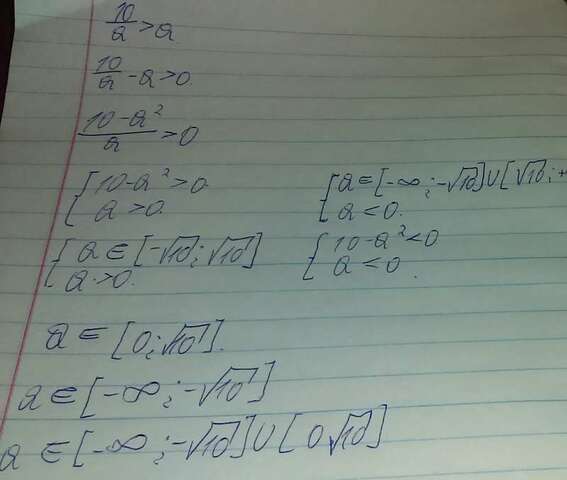 10/a > a
10/a - a > 0
(10 - a²)/a > 0
{ 10 - a² > 0
a > 0.
{ a ∈ [-√10; √10]
a > 0.
{ a ∈ [-∞; -√10] ∪ [√10; +
a < 0.
{ 10 - a² < 0
a < 0.
a ∈ [0; √10].
a ∈ [-∞; -√10]
a ∈ [-∞; -√10] ∪ [0 √10]